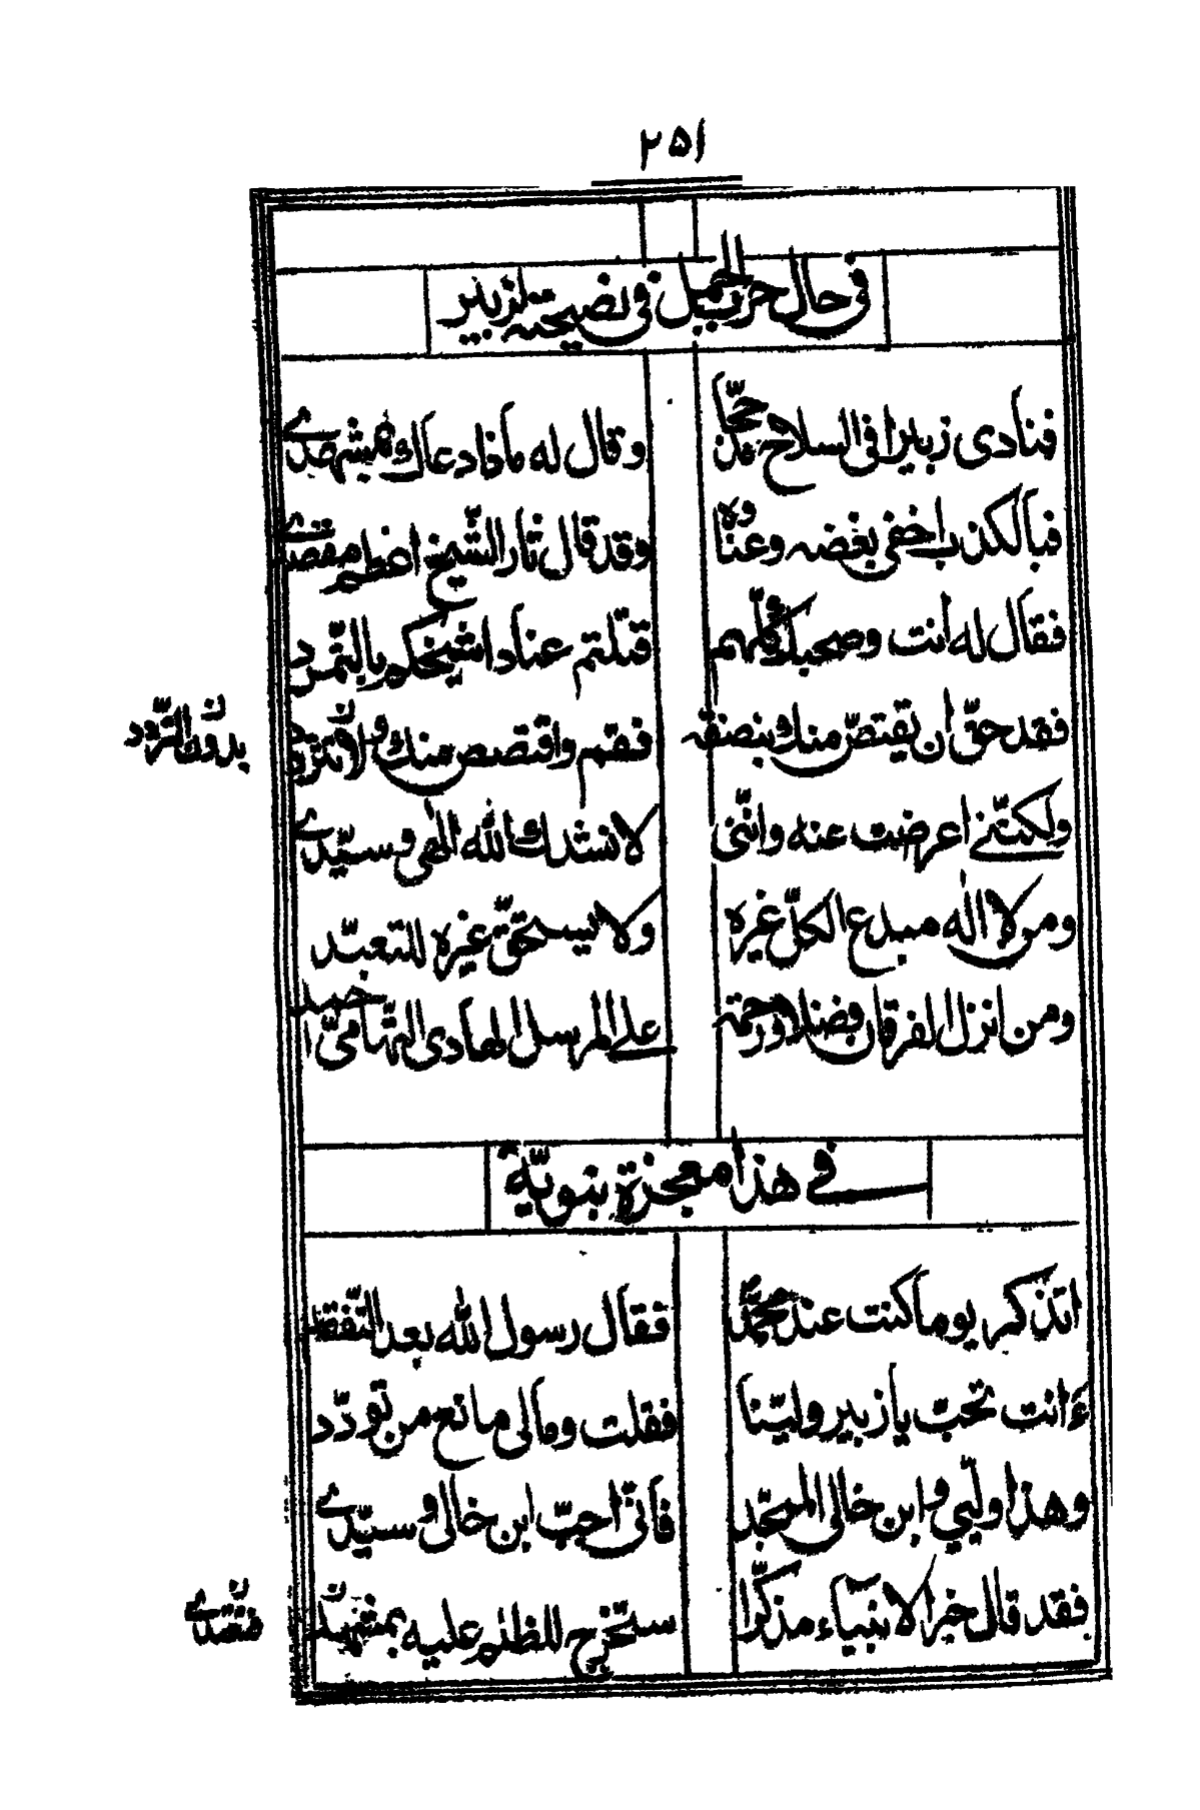 ٢٥١
في حال حرب الجمل في نصيحته لزبير
فنادى زبيرا في السلاح مدججا وقال له ماذا دعاك بمشهدي
فبالكذب اخفى بغضه وعناده وقد قال ثار الشيخ اعظم مقصدي
فقال له انت وصحبك كلهم قتلتم عنادا شيخكم بالتمرد
فقد حق ان يقتص منك بنصفة فقم واقتصص منك ولا تتردد
بدون التردد
ولكنني اعرضت عنه وانني لانشدك الله الهي وسيدي
ومن لا اله مبدع الكل غيره ولا يستحق غيره للتعبد
ومن انزل الفرقان فضلا ورحمة على المرسل الهادي التهامي احمد
في هذا معجزة نبوية
اتذكر يوما كنت عند محمد فقال رسول الله بعد التفقد
ءانت تحب يا زبير ولينا فقلت ومالي مانع من تودد
وهذا وليي وابن خالي الممجد فاني احب ابن خالي وسيدي
فقد قال خير الانبياء مذكرا ستخرج للظلم عليه